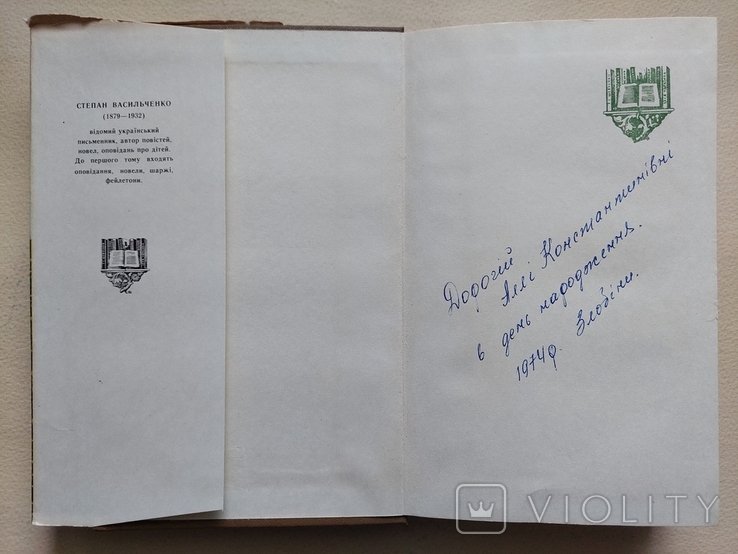 СТЕПАН ВАСИЛЬЧЕНКО
(1879—1932)
відомий український
письменник, автор повістей,
новел, оповідань про дітей.
До першого тому входять
оповідання, новели, шаржі,
фейлетони.
Дорогій
Аллі Константинівні
в день народження.
1974р. Злобіни.
VIOLITY